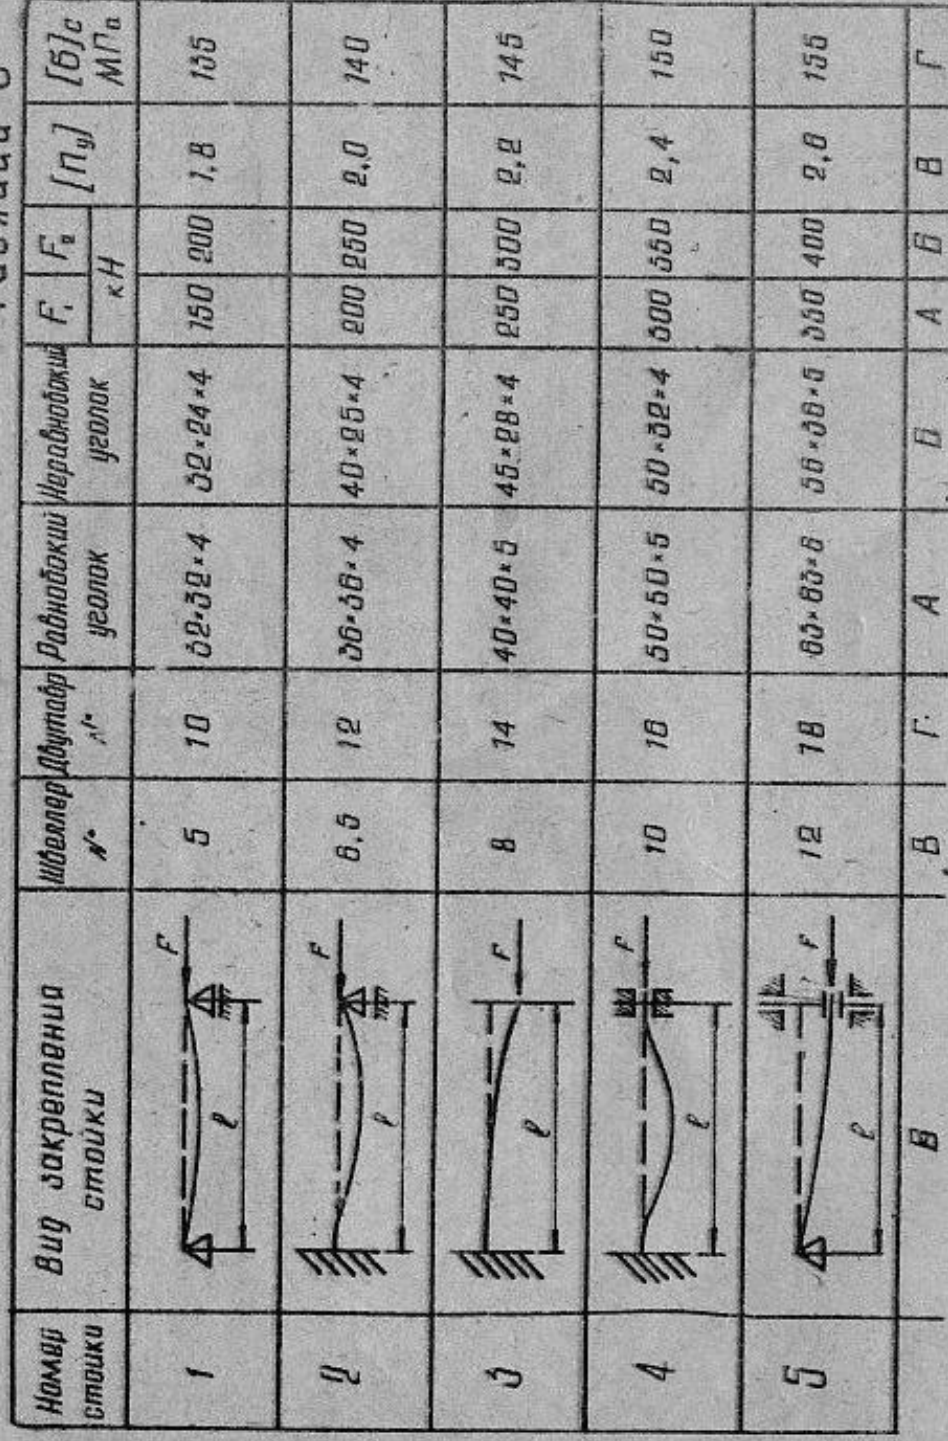 Номер стойки Вид закрепления стойки Швеллер № Двутавр № Равнобокий уголок Неравнобокий уголок F₁ F₂ кН [nу] [б]с МПа
1 F ℓ 5 10 32×32×4 32×24×4 150 200 1,8 135
2 F ℓ 6,5 12 36×36×4 40×25×4 200 250 2,0 140
3 F ℓ 8 14 40×40×5 45×28×4 250 300 2,2 145
4 F ℓ 10 16 50×50×5 50×32×4 300 350 2,4 150
5 F ℓ 12 18 63×63×6 56×36×5 350 400 2,6 155
В В Г А Б А Б В Г